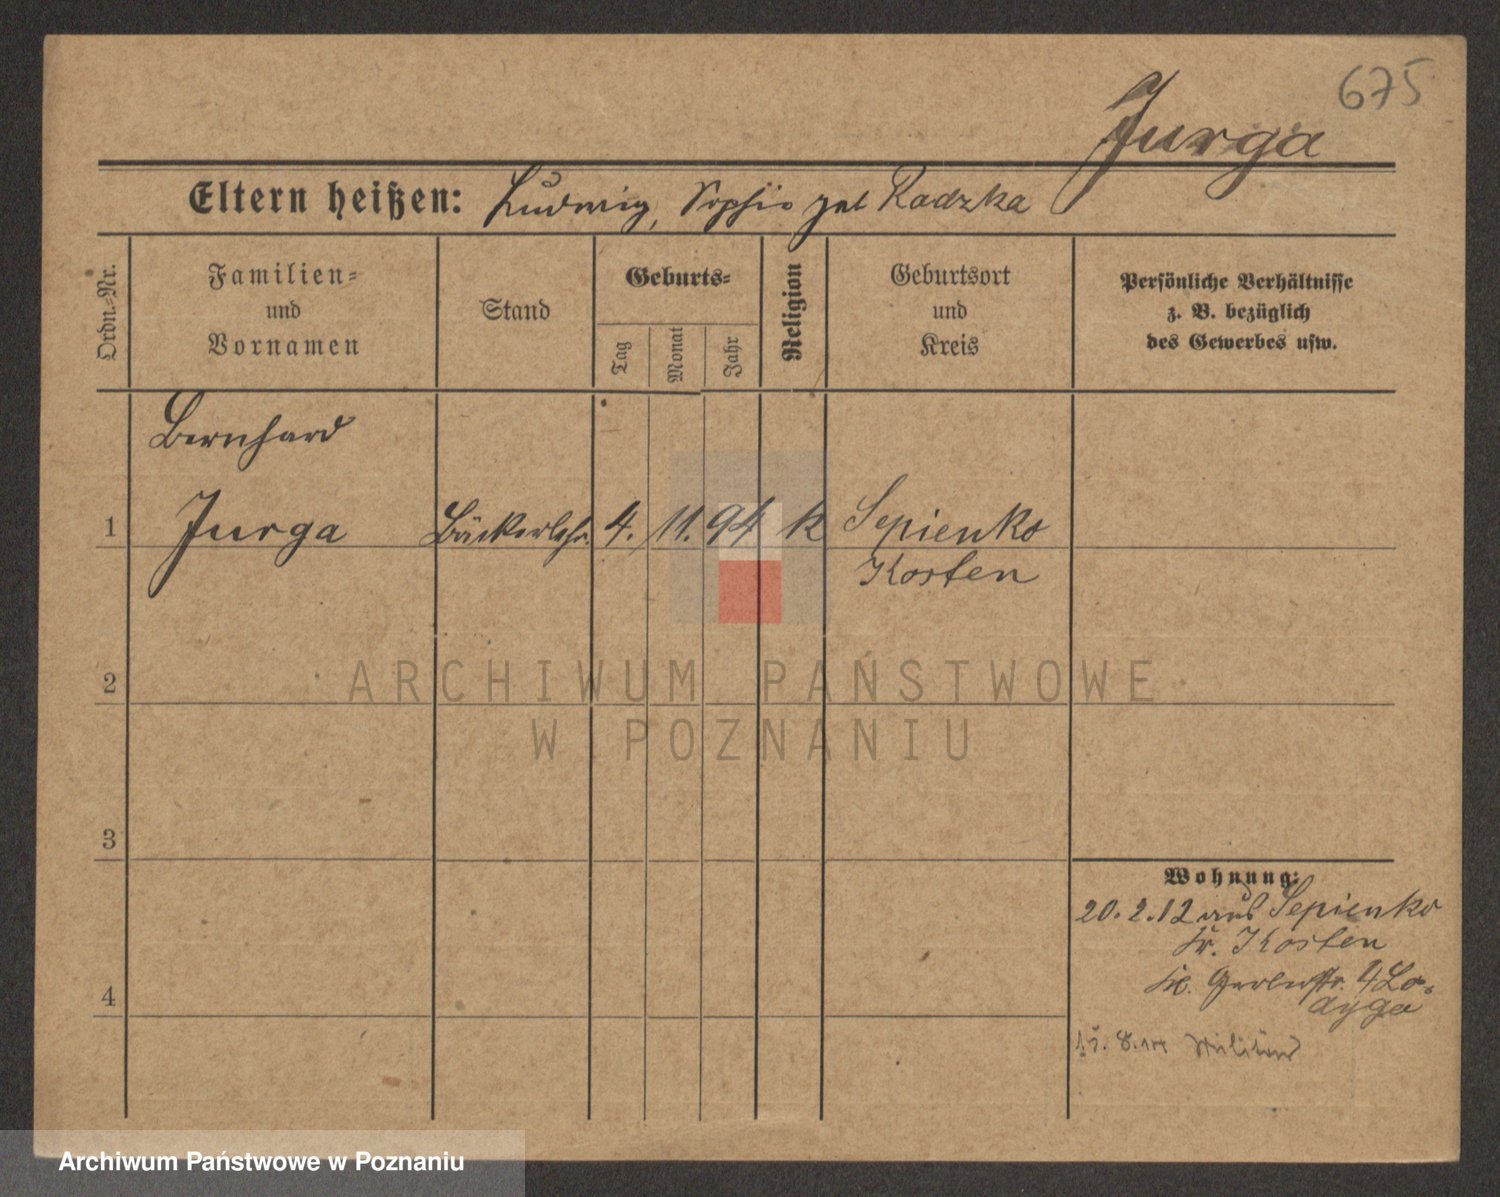 675
Jurga
Eltern heißen: Ludwig, Sophie geb Radzka
Ordn.=Nr.
Familien=
und
Vornamen
Stand
Geburts=
Tag
Monat
Jahr
Religion
Geburtsort
und
Kreis
Persönliche Verhältnisse
z. B. bezüglich
des Gewerbes usw.
Bernhard
1 Jurga Bäckerlehr. 4. 11. 94 k Sepienko
Kosten
2
3
4
Wohnung:
20.2.12 aus Sepienko
Kr. Kosten
Kl. Gerberstr. 4
Militär
ARCHIWUM PAŃSTWOWE
W POZNANIU
Archiwum Państwowe w Poznaniu